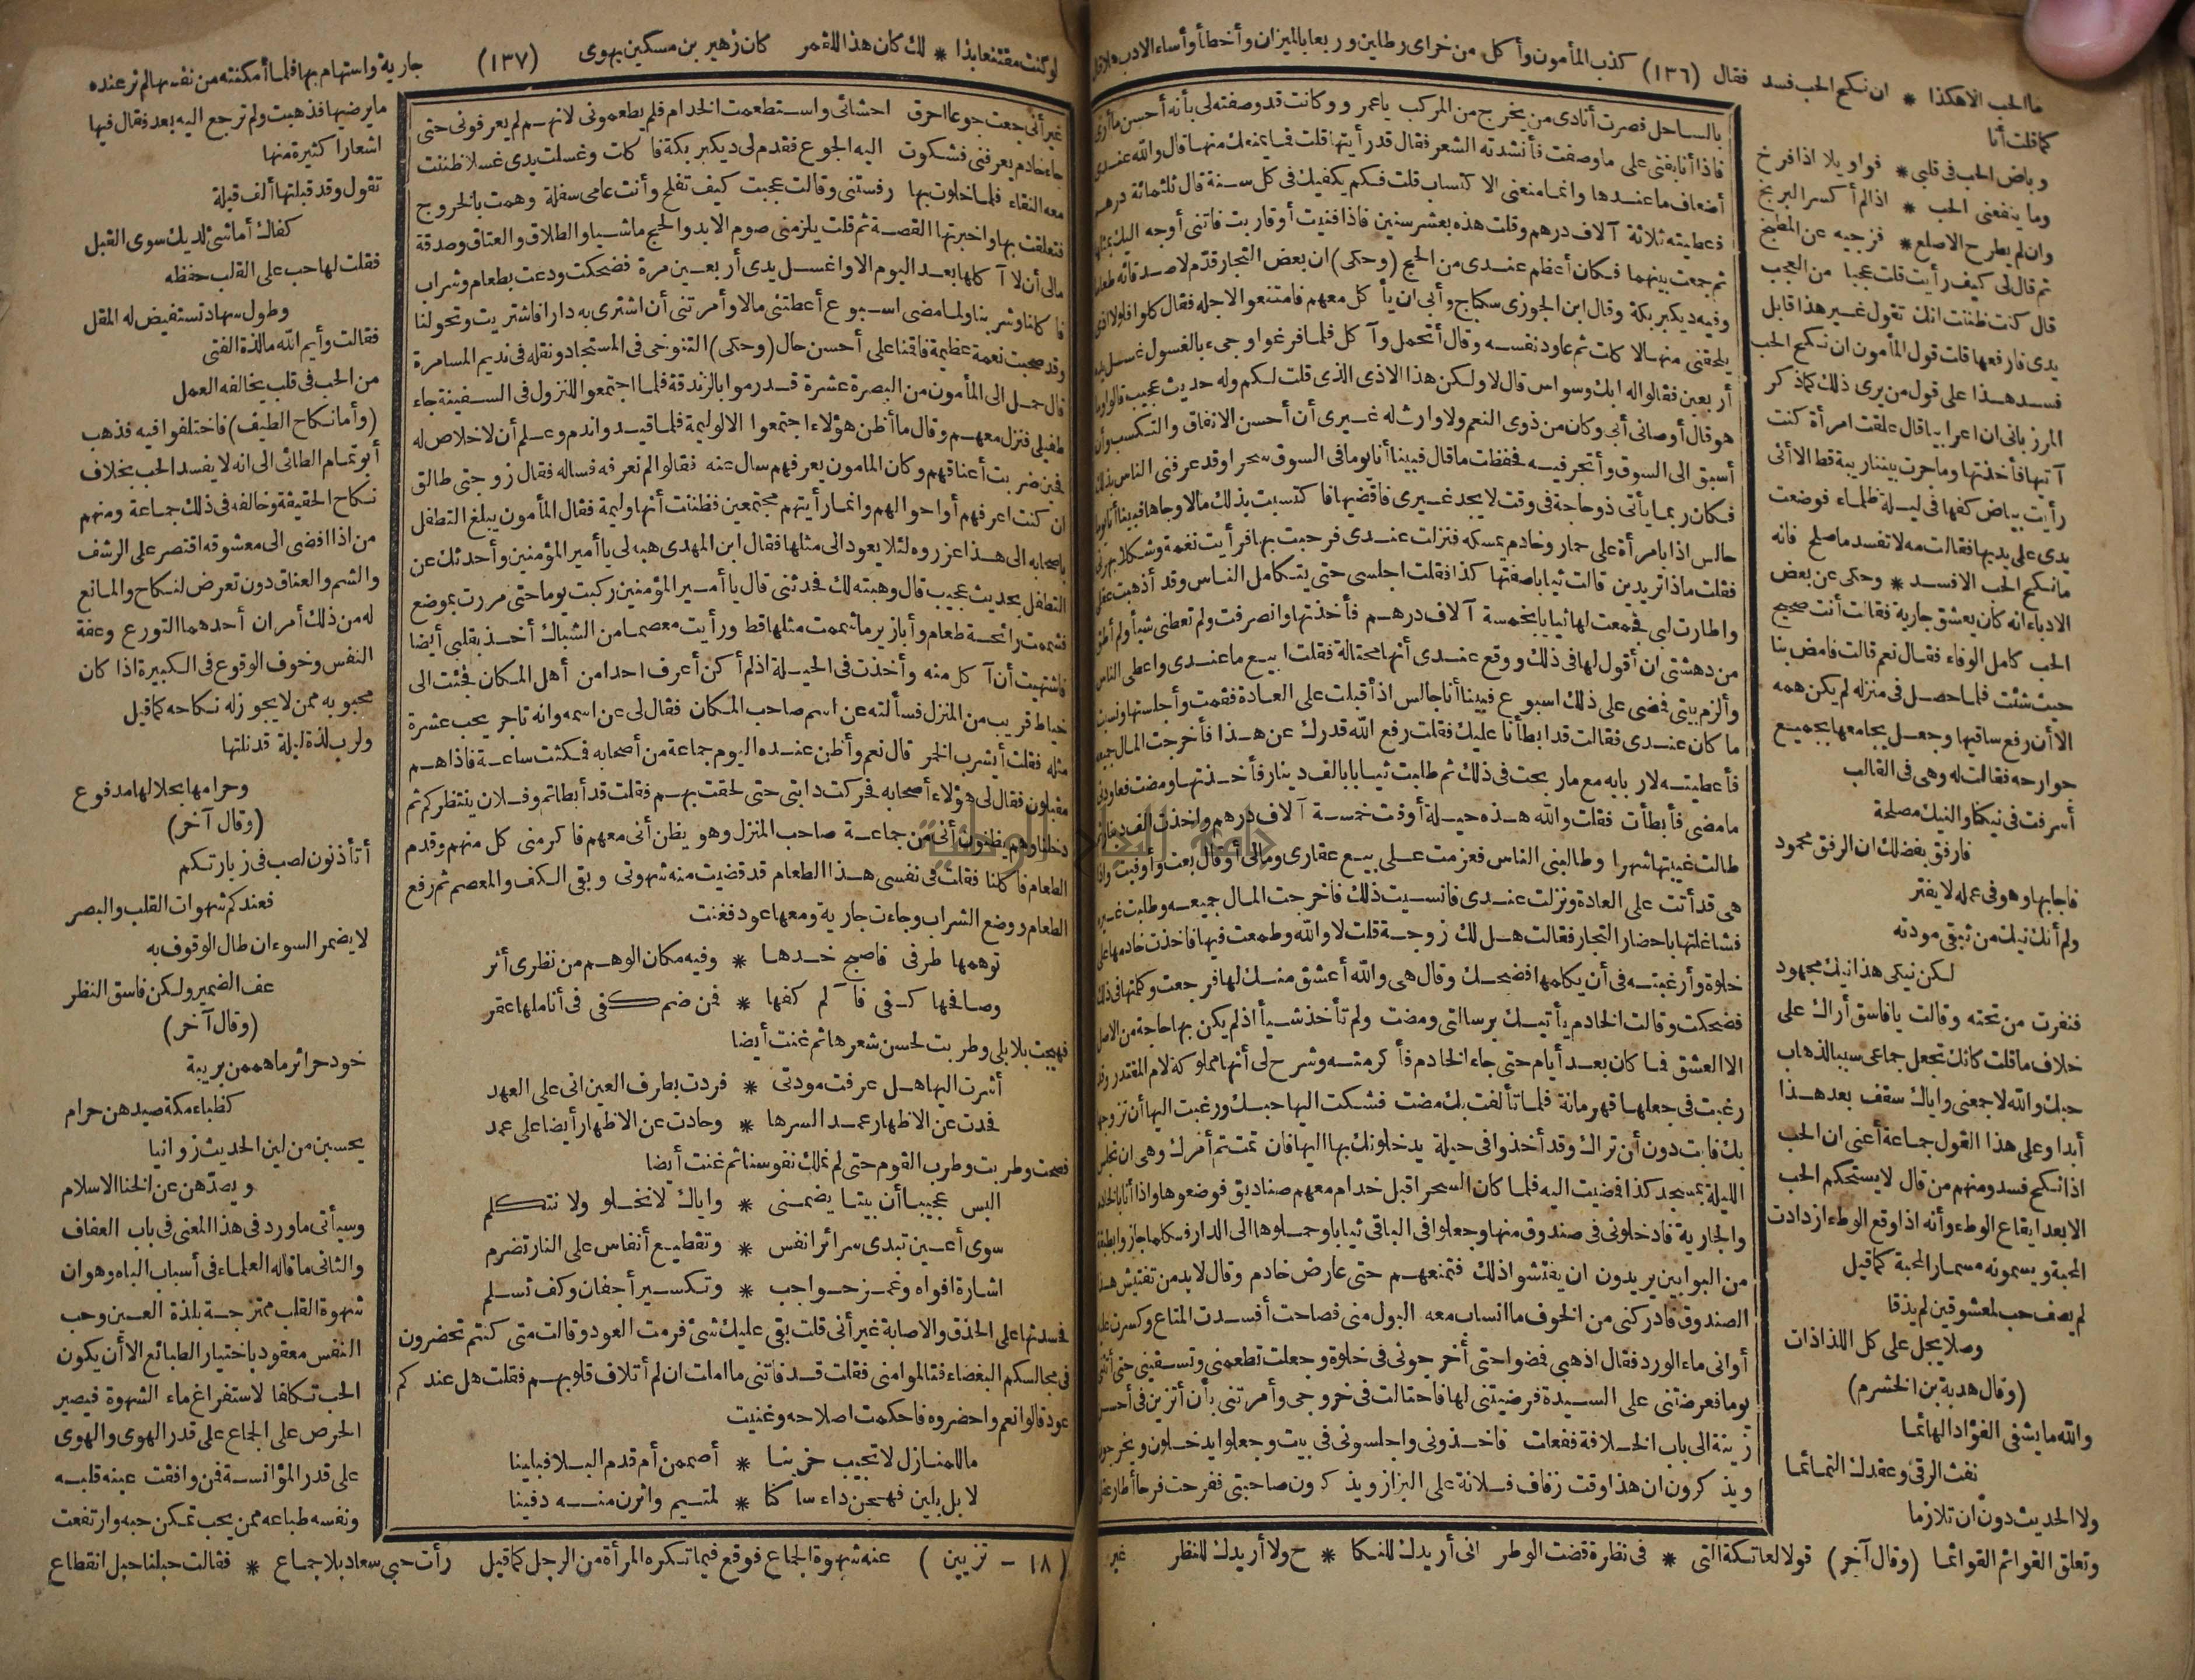 ما الحب الا هكذا * ان نكح الحب فسد فقال (١٣٦) كذب المأمون وأكل من خراى رطلين وربعا بالميزان وأخطأ وأساء الادب
كما قلت أنا
وباض الحب فى قلبى * فواويلا اذا فرخ
وما ينفعنى الحب * اذا لم أكسر البربخ
وان لم يطرح الاصلع * فرجيه عن المطبخ
ثم قال لى كيف رأيت قلت عجبا من العجب
قال كنت ظننت انك تقول غير هذا قابل
يدى فارفعها قلت قول المأمون ان نكح الحب
فسد هذا على قول من يرى ذلك كما ذكر
المرزبانى ان اعرابيا قال علقت امرأة كنت
آتيها فأخذتها وما جرت بيننا ريبة قط الا أنى
رأيت بياض كفها فى ليلة ظلماء فوضعت
يدى على يدها فقالت مه لا تفسد ما صلح فانه
ما نكح الحب الا فسد * وحكى عن بعض
الادباء انه كان يعشق جارية فقالت أنت صحيح
الحب كامل الوفاء فقال نعم قالت فامض بنا
حيث شئت فلما حصل فى منزله لم يكن همه
الا أن رفع ساقيها وجعل يجامعها بجميع
جوارحه فقالت له وهى فى القالب
أسرفت فى نيكنا والنيك مصلحة
فارفق بفضلك ان الرفق محمود
فاجابها وهو فى عمله لا يفتر
ولم أنك نيك من تبقى مودته
لكن نيكى هذا نيك مجهود
فنفرت من تحته وقالت يا فاسق أراك على
خلاف ما قلت كانك تجعل جماعى سببا لذهاب
حبك والله لا جمعنى واياك سقف بعد هذا
أبدا وعلى هذا القول جماعة أعنى ان الحب
اذا نكح فسد ومنهم من قال لا يستحكم الحب
الا بعد ايقاع الوطء وأنه اذا وقع الوطء ازدادت
المحبة ويسمونه مسمار المحبة كما قيل
لم يصف حب لمعشوقين لم يذقا
وصلا يجل على كل اللذاذات
(وقال هدبة بن الخشرم)
والله ما يشفى الفؤاد الهائما
نفث الرقى وعقدك التمائما
ولا الحديث دون ان تلازما
وتعلق القوائم القوائما (وقال آخر) قولا لعاتكة التى * فى نظرة قضت الوطر انى أريدك للنكا * ح ولا أريدك للنظر
بالساحل فصرت أنادى من يخرج من المركب يا عمرو وكانت قد وصفته لى بأنه أحسن
فاذا أنا بفتى على ما وصفت فأنشدته الشعر فقال قد رأيتها قلت فما يمنعك منها قال والله عندى
أضعاف ما عندها وانما منعنى الاكتساب قلت فكم يكفيك فى كل سنة قال ثلثمائة درهم
فعطيته ثلاثة آلاف درهم وقلت هذه بعشر سنين فاذا فنيت أو قاربت فاتنى أوجه اليك
ثم جمعت بينهما فكان أعظم عندى من الحج (وحكى) ان بعض التجار قدم لاصدقائه طعاما
وفيه ديكبريكة وقال ابن الجوزى سكباج وأبى ان يأكل معهم فامتنعوا لاجله فقال كلوا فلولا
يلحقنى منها لا كلت ثم عاود نفسه وقال أتحمل وآكل فلما فرغوا وجىء بالغسول غسل يده
أربعين فقالوا له ابك وسواس قال لا ولكن هذا الاذى الذى قلت لكم وله حديث عجيب قالوا
هو قال أوصانى أبى وكان من ذوى النعم ولا وارث له غيرى أن أحسن الانفاق والتكسب وأن
أسبق الى السوق وأتجر فيه فحفظت ما قال فبينا أنا يوما فى السوق سحرا وقد عرفنى الناس بذلك
فكان ربما يأتى ذو حاجة فى وقت لا يجد غيرى فاقضيها فاكتسبت بذلك مالا وجاها فبينا أنا يوما
جالس اذا بامرأة على حمار وخادم يمسكه فنزلت عندى فرحبت بها فرأيت نغمة وشكلا
فقلت ماذا تريدين قالت ثيابا صفتها كذا فقلت اجلسى حتى يتكامل الناس وقد أذهبت عقلى
وأطارت لبى فجمعت لها ثيابا بخمسة آلاف درهم فأخذتها وانصرفت ولم تعطنى شيأ ولم أطق
من دهشتى ان أقول لها فى ذلك ووقع عندى أنها محتالة فقلت ابيع ما عندى واعطى الناس
وألزم بيتى فمضى على ذلك اسبوع فبينا أنا جالس اذ أقبلت على العادة فقمت وأجلستها ونسيت
ما كان عندى فقالت قد ابطأنا عليك فقلت رفع الله قدرك عن هذا فأخرجت المال جميعه
فأعطيته لاربابه مع ما ربحت فى ذلك ثم طلبت ثيابا بالف دينار فأخذتها ومضت فعاودنى
ما مضى فأبطأت فقلت والله هذه حيلة أوفت خمسة آلاف درهم واخذت الف دينار
طالت غيبتها شهرا وطالبنى الناس فعزمت على بيع عقارى ومالى أو قال بعت وأوفيت
هى قد أتت على العادة ونزلت عندى فانسيت ذلك فاخرجت المال جميعه وطلبت غيره
فشاغلتها باحضار التجار فقالت هل لك زوجة قلت لا والله وطمعت فيها فاخذت خادمها على
خلوة وأرغبته فى أن يكلمها فضحك وقال هى والله أعشق منك لها فرجعت وكلمتها فى ذلك
فضحكت وقالت الخادم يأتيك برسالتى ومضت ولم تأخذ شيأ اذ لم يكن بها حاجة من الاصل
الا العشق فما كان بعد أيام حتى جاء الخادم فأكرمته وشرح لى أنها مملوكة لام المقتدر
رغبت فى جعلها قهرمانة فلما تألفت بك مضت فشكت اليها حبك ورغبت اليها أن تزوجها
بك فابت دون أن تراك وقد أخذوا فى حيلة يدخلونك بها اليها فان تمت تم أمرك وهى ان تجلس
الليلة بمسجد كذا فمضيت اليه فلما كان السحر اقبل خدام معهم صناديق فوضعوها واذا أنا بالخادم
والجارية فادخلونى فى صندوق منها وجعلوا فى الباقى ثيابا وحملوها الى الدار فكلما جازوا بطبقة
من البوابين يريدون ان يفتشوا ذلك فتمنعهم حتى عارض خادم وقال لا بد من تفتيش هذا
الصندوق فادركنى من الخوف ما انساب معه البول منى فصاحت أفسدت المتاع وكسرت
أوانى ماء الورد فقال اذهبى فمضوا حتى أخرجونى فى خلوة وجعلت تطعمنى وتسقينى حتى
يوما فعرضتنى على السيدة فرضيتنى لها فاحتالت فى خروجى وأمرتنى بأن أتزين فى أحسن
زينة الى باب الخلافة ففعلت فاخذونى واجلسونى فى بيت وجعلوا يدخلون ويخرجون
ويذكرون ان هذا وقت زفاف فلانة على البزاز ويذكرون صاحبتى ففرحت فرحا أطار عقلى
غير
لو كنت مقتنعا بذا * لك كان هذا للقمر كان زهير بن مسكين يهوى (١٣٧) جارية واستهام بها فلما أمكنته من نفسها لم تر عنده
غير أنى جعت جوعا احرق احشائى واستطعمت الخدام فلم يطعمونى لانهم لم يعرفونى حتى
جاء خادم يعرفنى فشكوت اليه الجوع فقدم لى ديكبريكة فاكلت وغسلت يدى غسلا ظننت
معه النقاء فلما خلوت بها رفستنى وقالت عجبت كيف تفلح وأنت عامى سفلة وهمت بالخروج
فتعلقت بها واخبرتها القصة ثم قلت يلزمنى صوم الابد والحج ماشيا والطلاق والعتاق وصدقة
مالى أن لا آكلها بعد اليوم الا واغسل يدى أربعين مرة فضحكت ودعت بطعام وشراب
فاكلنا وشربنا ولما مضى اسبوع أعطتنى مالا وأمرتنى أن اشترى به دارا فاشتريت وتحولنا
وقد صحبت نعمة عظيمة فاقمنا على أحسن حال (وحكى) التنوخى فى المستجاد ونقله فى نديم المسامرة
قال حمل الى المأمون من البصرة عشرة قد رموا بالزندقة فلما اجتمعوا للنزول فى السفينة جاء
طفيلى فنزل معهم وقال ما أظن هؤلاء اجتمعوا الا لوليمة فلما قيدوا ندم وعلم أن لا خلاص له
فحين ضربت أعناقهم وكان المامون يعرفهم سال عنه فقالوا لم نعرفه فساله فقال زوجتى طالق
ان كنت اعرفهم أو احوالهم وانما رأيتهم مجتمعين فظننت أنها وليمة فقال المأمون يبلغ التطفل
باصحابه الى هذا عزروه لئلا يعود الى مثلها فقال ابن المهدى هبه لى يا أمير المؤمنين وأحدثك عن
التطفل بحديث عجيب قال وهبته لك فحدثنى قال يا أمير المؤمنين ركبت يوما حتى مررت بموضع
فشممت رائحة طعام وأبازير ما شممت مثلها قط ورأيت معصما من الشباك أخذ بقلبى أيضا
فاشتهيت أن آكل منه وأخذت فى الحيلة اذ لم أكن أعرف احدا من أهل المكان فجئت الى
خياط قريب من المنزل فسألته عن اسم صاحب المكان فقال لى عن اسمه وانه تاجر يحب عشرة
مثله فقلت أيشرب الخمر قال نعم وأظن عنده اليوم جماعة من أصحابه فمكثت ساعة فاذا هم
مقبلون فقال لى هؤلاء أصحابه فحركت دابتى حتى لحقت بهم فقلت قد أبطاتم وفلان ينتظركم ثم
دخلنا وهم يظنون أنى من جماعة صاحب المنزل وهو يظن أنى معهم فاكرمنى كل منهم وقدم
الطعام فاكلنا فقلت فى نفسى هذا الطعام قد قضيت منه شهوتى وبقى الكف والمعصم ثم رفع
الطعام ووضع الشراب وجاءت جارية ومعها عود فغنت
توهمها طرفى فاصبح خدها * وفيه مكان الوهم من نظرى أثر
وصافحها كفى فآلم كفها * فمن ضم كفى فى أناملها عقر
فهيجت بلابلى وطربت لحسن شعرها ثم غنت أيضا
أشرت اليها هل عرفت مودتى * فردت بطرف العين انى على العهد
فحدت عن الاظهار عمدا لسرها * وحادت عن الاظهار أيضا على عمد
فصحت وطربت وطرب القوم حتى لم نملك نفوسنا ثم غنت أيضا
اليس عجيبا أن بيتا يضمنى * واياك لا نخلو ولا نتكلم
سوى أعين تبدى سرائر انفس * وتقطيع أنفاس على النار تضرم
اشارة افواه وغمز حواجب * وتكسير أجفان وكف تسلم
فحسدتها على الحذق والاصابة غير أنى قلت بقى عليك شئ فرمت العود وقالت متى كنتم تحضرون
فى مجالسكم البغضاء فتالموا منى فقلت قد فاتنى ما املت ان لم أتلاف قلوبهم فقلت هل عندكم
عود قالوا نعم واحضروه فاحكمت اصلاحه وغنيت
ما للمنازل لا تجيب حزينا * أصممن أم قدم البلا فبلينا
لا بل بلين فهيجن داء ساكنا * لمتيم واثرن منه دفينا
ما يرضيها فذهبت ولم ترجع اليه بعد فقال فيها
اشعارا كثيرة منها
تقول وقد قبلتها ألف قبلة
كفاك أما شئ لديك سوى القبل
فقلت لها حب على القلب حفظه
وطول سهاد تستفيض له المقل
فقالت وأيم الله ما لذة الفتى
من الحب فى قلب يخالفه العمل
(وأما نكاح الطيف) فاختلفوا فيه فذهب
أبو تمام الطائى الى انه لا يفسد الحب بخلاف
نكاح الحقيقة وخالفه فى ذلك جماعة ومنهم
من اذا افضى الى معشوقه اقتصر على الرشف
والشم والعناق دون تعرض لنكاح والمانع
له من ذلك أمران أحدهما التورع وعفة
النفس وخوف الوقوع فى الكبيرة اذا كان
محبوبه ممن لا يجوز له نكاحه كما قيل
ولرب لذة ليلة قد نلتها
وحرامها بحلالها مدفوع
(وقال آخر)
أتأذنون لصب فى زيارتكم
فعندكم شهوات القلب والبصر
لا يضمر السوء ان طال الوقوف به
عف الضمير ولكن فاسق النظر
(وقال آخر)
خود حرائر ما هممن بريبة
كظباء مكة صيدهن حرام
يحسبن من لين الحديث زوانيا
ويصدهن عن الخنا الاسلام
وسيأتى ما ورد فى هذا المعنى فى باب العفاف
والثانى ما قاله العلماء فى أسباب الباه وهو ان
شهوة القلب ممتزجة بلذة العين وحب
النفس معقود باختيار الطبائع الا أن يكون
الحب تكلفا لاستفراغ ماء الشهوة فيصير
الحرص على الجماع على قدر الهوى والهوى
على قدر المؤانسة فمن وافقت عينه قلبه
ونفسه طباعه ممن يحب تمكن حبه وارتفعت
(١٨ - تزيين) عنه شهوة الجماع فوقع فيما تكره المرأة من الرجل كما قيل رأت حبى سعاد بلا جماع * فقالت حبلنا حبل انقطاع